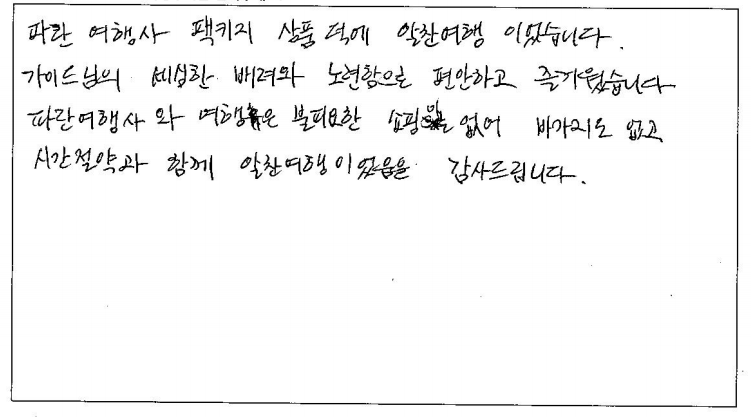 파란 여행사 팩키지 상품 덕에 알찬여행 이었습니다.
가이드님의 세심한 배려와 노련함으로 편안하고 즐거웠습니다
파란여행사 와 여행은 불피요한 쇼핑을 없어 바가지도 없고
시간절약과 함께 알찬여행이었음을 감사드립니다.